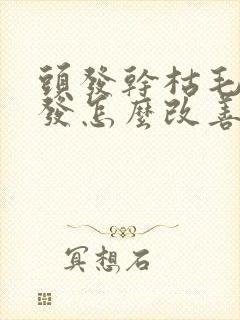 頭發幹枯毛
發怎麼改善
冥想石